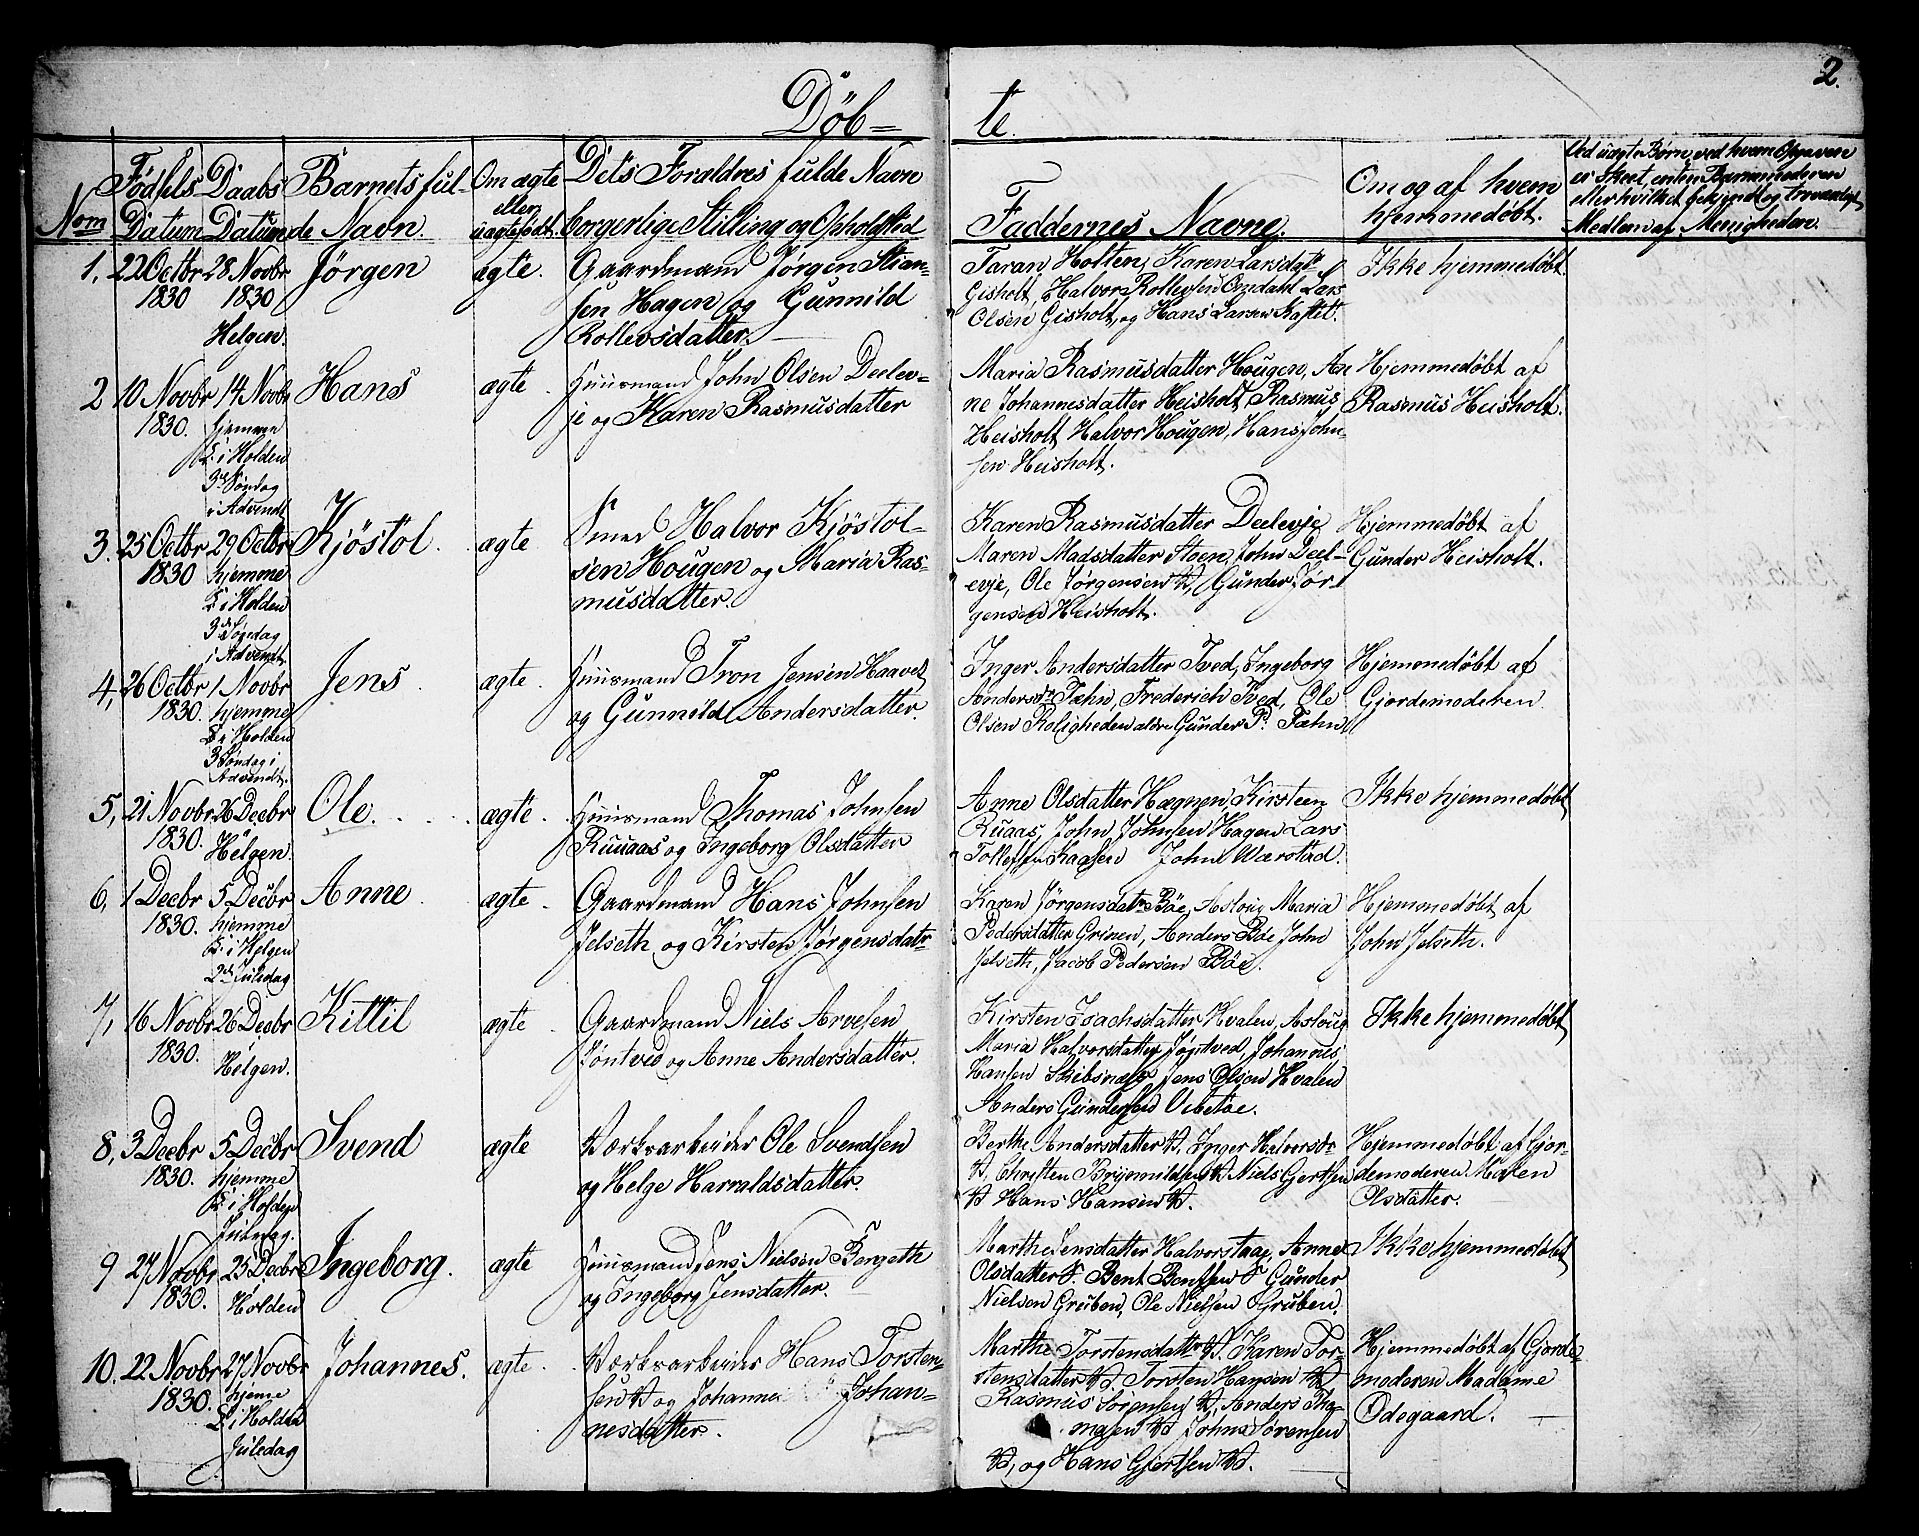 2.
Döb= te.
Nom
Födsels Datum
Daabs Datum
Barnets ful-
de Navn.
Om ægte
eller
uægtefødt.
Dets Forældres fulde Navn
borgerlige Stilling og Opholdsted
Faddernes Navne.
Om og af hvem
hjemmedøbt.
Ved uægte Børn, ved hvem Opgaven
er skeet, enten Barnemoderen
eller hvilket bekjendt og troværdigt
Medlem af Menigheden.
1, 22 Octbr
1830
28 Novbr
1830
Helgen.
Jörgen
ægte.
Gaardmand Jörgen Stian-
sen Hagen og Gunnild
Rollevsdatter.
Taran Holten, Karen Larsdatr
Gisholt, Halvor Rollevsen Omdahl Lars
Olsen Gisholt, og Hans Larsen Kastet.
Ikke hjemmedøbt
2 10 Novbr
1830.
14 Novbr
hjemme
K. i Holden
3de Søndag
i Advendt
Hans
ægte
Huusmand John Olsen Deelev-
je og Karen Rasmusdatter
Maria Rasmusdatter Hougen, An
ne Johannesdatter Heisholt, Rasmus
Heisholt Halvor Hougen, Hans John-
sen Heisholt.
Hjemmedøbt af
Rasmus Heisholt.
3. 25 Octbr
1830
29 Octbr
hjemme
K i Holden
3de Søndag
i Advendt
Kjöstol.
ægte
Smed Halvor Kjöstol-
sen Hougen og Maria Ras-
musdatter.
Karen Rasmusdatter Deelevje
Maren Madsdatter Stoen, John Deel-
evje, Ole Jørgensen V, Gunder Jør
gensen Heisholt.
Hjemmedøbt af
Gunder Heisholt.
4, 26 Octbr
1830.
1 Novbr
hjemme
K i Holden
3 Søndag i
Advendt.
Jens
ægte.
Huusmand Tron Jensen Haavet
og Gunnild Andersdatter.
Inger Andersdatter Tved, Ingeborg
Andersdr Fæhn, Frederich Tved, Ole
Olsen Roligheden aldre Gunder P. Fæhn
Hjemmedøbt af
Gjordemoderen
5, 21 Novbr
1830.
26 Decbr
Helgen.
Ole
ægte.
Huusmand Thomas Johnsen
Ruugaas og Ingeborg Olsdatter
Anne Olsdatter Hægnen, Kirsteen
Rugaas, John Johnsen Hagen Lars
Tollefsen Kaasen John Wærstad.
Ikke hjemmedøbt
6, 1 Decbr
1830.
5 Decbr
hjemme
K i Helgen
2d Juledag
Anne
ægte
Gaardmand Hans Johnsen
Jelseth og Kirsten Jörgensdatr
Karen Jörgensdatr Böe, Asloug Maria
Pedersdatter Grinen, Anders Böe John
Jelseth, Jacob Pedersen Böe.
Hjemmedøbt af
John Jelseth.
7, 16 Novbr
1830.
26 Decbr
Helgen.
Kittil
ægte
Gaardmand Niels Arvesen
Jöntved og Anne Andersdatter.
Kirsten Isachsdatter Hvalen, Asloug
Maria Halvorsdatter Jöntved, Johannes
Hansen Skibsnæs Jens Olsen Hvalen
Anders Gundersen Vibetoe.
Ikke hjemmedøbt
8, 3 Decbr
1830.
5 Decbr
hjemme
K i Holden
Juledag.
Svend
ægte
Værksarbeider Ole Svendsen
og Helge Harraldsdatter.
Berthe Andersdatter V, Inger Halvorsdr
V, Christen Brynnildsen V Niels Gjertsen
V Hans Hansen V.
Hjemmedøbt af Gjor-
demoderen Maren
Olsdatter.
9 27 Novbr
1830.
25 Decbr
Holden
Ingeborg.
ægte
Huusmand Jens Nielsen Bergeth
og Ingeborg Jensdatter.
Marthe Jensdatter Halvorstaae, Anne
Olsdatter S. Bent Bentsen S Gunder
Nielsen Gruben, Ole Nielsen Gruben.
Ikke hjemmedøbt
10. 22 Novbr
1830.
27 Novbr
hjeme
K i Holden
Juledag
Johannes.
ægte.
Værksarbeider Hans Torsten-
sen V og Johanne Johan-
nesdatter.
Marthe Torstensdatter V. Karen Tor-
stensdatter V. Torsten Hansen V
Rasmus Sörensen V, Anders Tho-
masen V John Sörensen
V, og Hans Gjertsen V.
Hjemmedøbt af Gjorde-
moderen Madame
Odegaard.